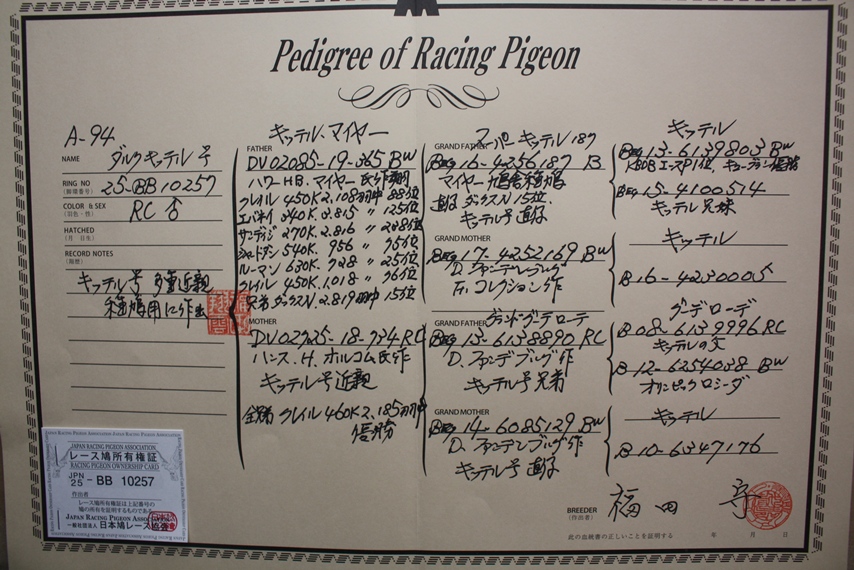 Pedigree of Racing Pigeon
A-94
NAME ダルクキッテル号
RING NO (脚環番号) 25-BB10257
COLOR & SEX (羽色・性) RC ♂
HATCHED (月 日生)
RECORD NOTES (履歴)
キッテル号 多重近親
種鳩用に作出
キッテル・マイヤー
FATHER
DV02085-19-365 BW
ハワー H.B. マイヤー 氏作翔
クレイル 450K 2,108羽中 88位
エバネイ 340K 3.815 〃 125位
サンディジ 270K 2.816 〃 208位
シャトダン 540K. 956 〃 75位
ルーマン 630K. 728 〃 25位
クレイル 450K. 1018 〃 76位
兄弟 ダックスN. 2.819羽中 15位
MOTHER
DV02925-18-734 RC
ハンス. H. ホルコム氏作
キッテル号近親
全姉 クレイル 460K 2,185羽中
優勝
スーパーキッテル187
GRAND FATHER
BEG 16-4256187 B
マイヤー鳩舎種鳩
直子 ダックスN 15位.
キッテル号直仔
GRAND MOTHER
BEG 17-4252169 BW
D. ファンデンブルグ
Fr. コレクション作
グランド・グーテローテ
GRAND FATHER
BEG 13-6138890 RC
D. ファンデンブルグ作
キッテル号兄弟
GRAND MOTHER
BEG 14-6085129 BW
D. ファンデンブルグ作
キッテル号 直子
キッテル
BEG 13-6139803 BW
KBDB エースP1位,
BEG 15-4100514
キッテル兄妹
キッテル
B 16-4230005
グーデローデ
B 08-6139996 RC
キッテルの父
B 12-6254038 BW
オリンピックロシータ
キッテル
B 10-6347176
BREEDER (作出者) 福田 守
此の血統書の正しいことを証明する 年 月 日
JAPAN RACING PIGEON ASSOCIATION
レース鳩所有権証
RACING PIGEON OWNERSHIP CARD
JPN
25 - BB 10257
作出者
レース鳩所有権証は上記番号の
鳩の所有を証明するものである。
JAPAN RACING PIGEON ASSOCIATION
一般社団法人 日本鳩レース協会